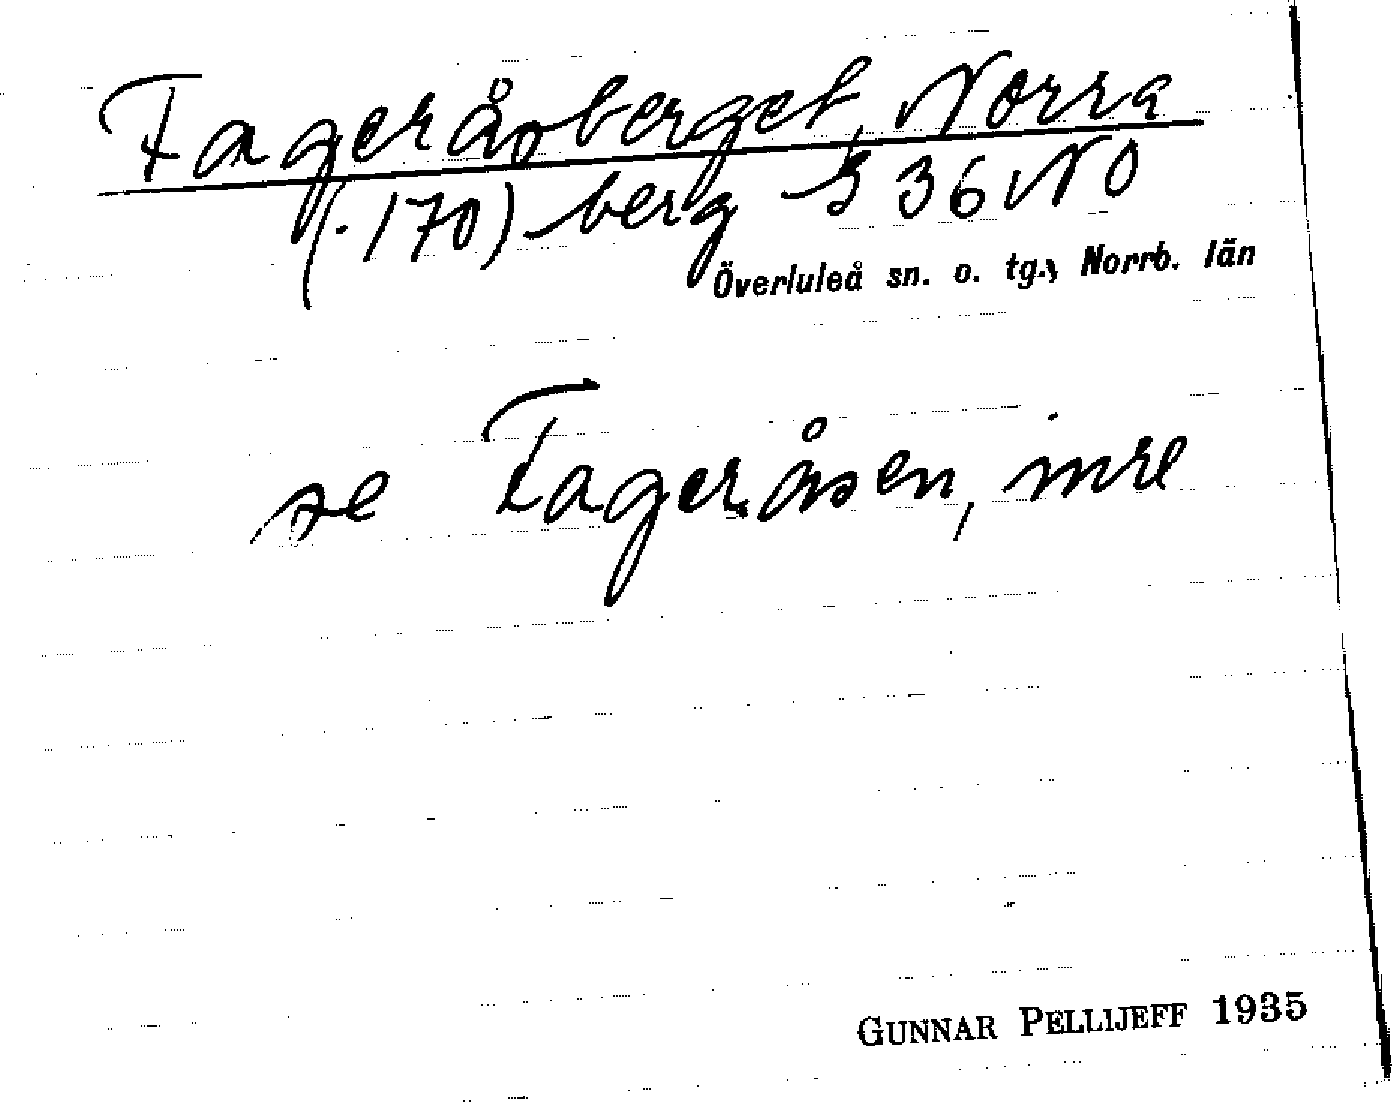 Fageråsberget, Norra
(.170) berg S 36 NO
Överluleå sn. o. tg., Norrb. län
se Fageråsen, inre
GUNNAR PELLIJEFF 1935